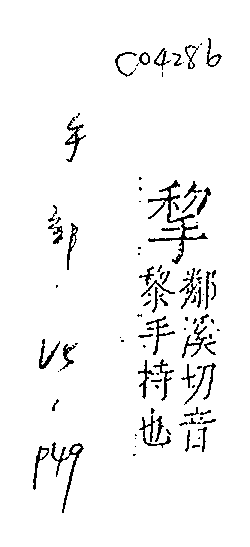 C04286
鄰溪切音
黎手持也
手部. V5, P49